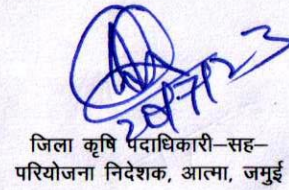 20/7/23
जिला कृषि पदाधिकारी–सह–
परियोजना निदेशक, आत्मा, जमुई